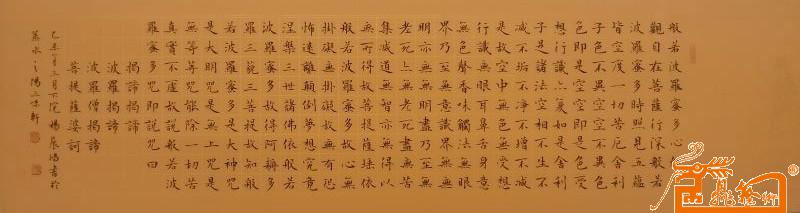 般若波羅蜜多心
觀自在菩薩行深般若
波羅蜜多時照見五蘊
皆空度一切苦厄舍利
子色不異空空不異色
色即是空空即是色受
想行識亦復如是舍利
子是諸法空相不生不
減不垢不淨不增不減
是故空中無色無受想
行識無眼耳鼻舌身意
無色聲香味觸法無眼
界乃至無意識界無無
明亦無無明盡乃至無
老死亦無老死盡無苦
集減道無智亦無得以
無所得故菩提薩埵依
般若波羅蜜多故心無
掛礙無掛礙故無有恐
怖遠離顛倒夢想究竟
涅槃三世諸佛依般若
波羅蜜多故得阿耨多
羅三藐三菩提故知般
若波羅蜜多是大神咒
是大明咒是無上咒是
無等等咒能除一切苦
真實不虛故說般若波
羅蜜多咒即說咒曰
揭諦揭諦
波羅揭諦
波羅僧揭諦
菩提薩婆訶
乙未年三月下浣楊書於
水之陽三味軒